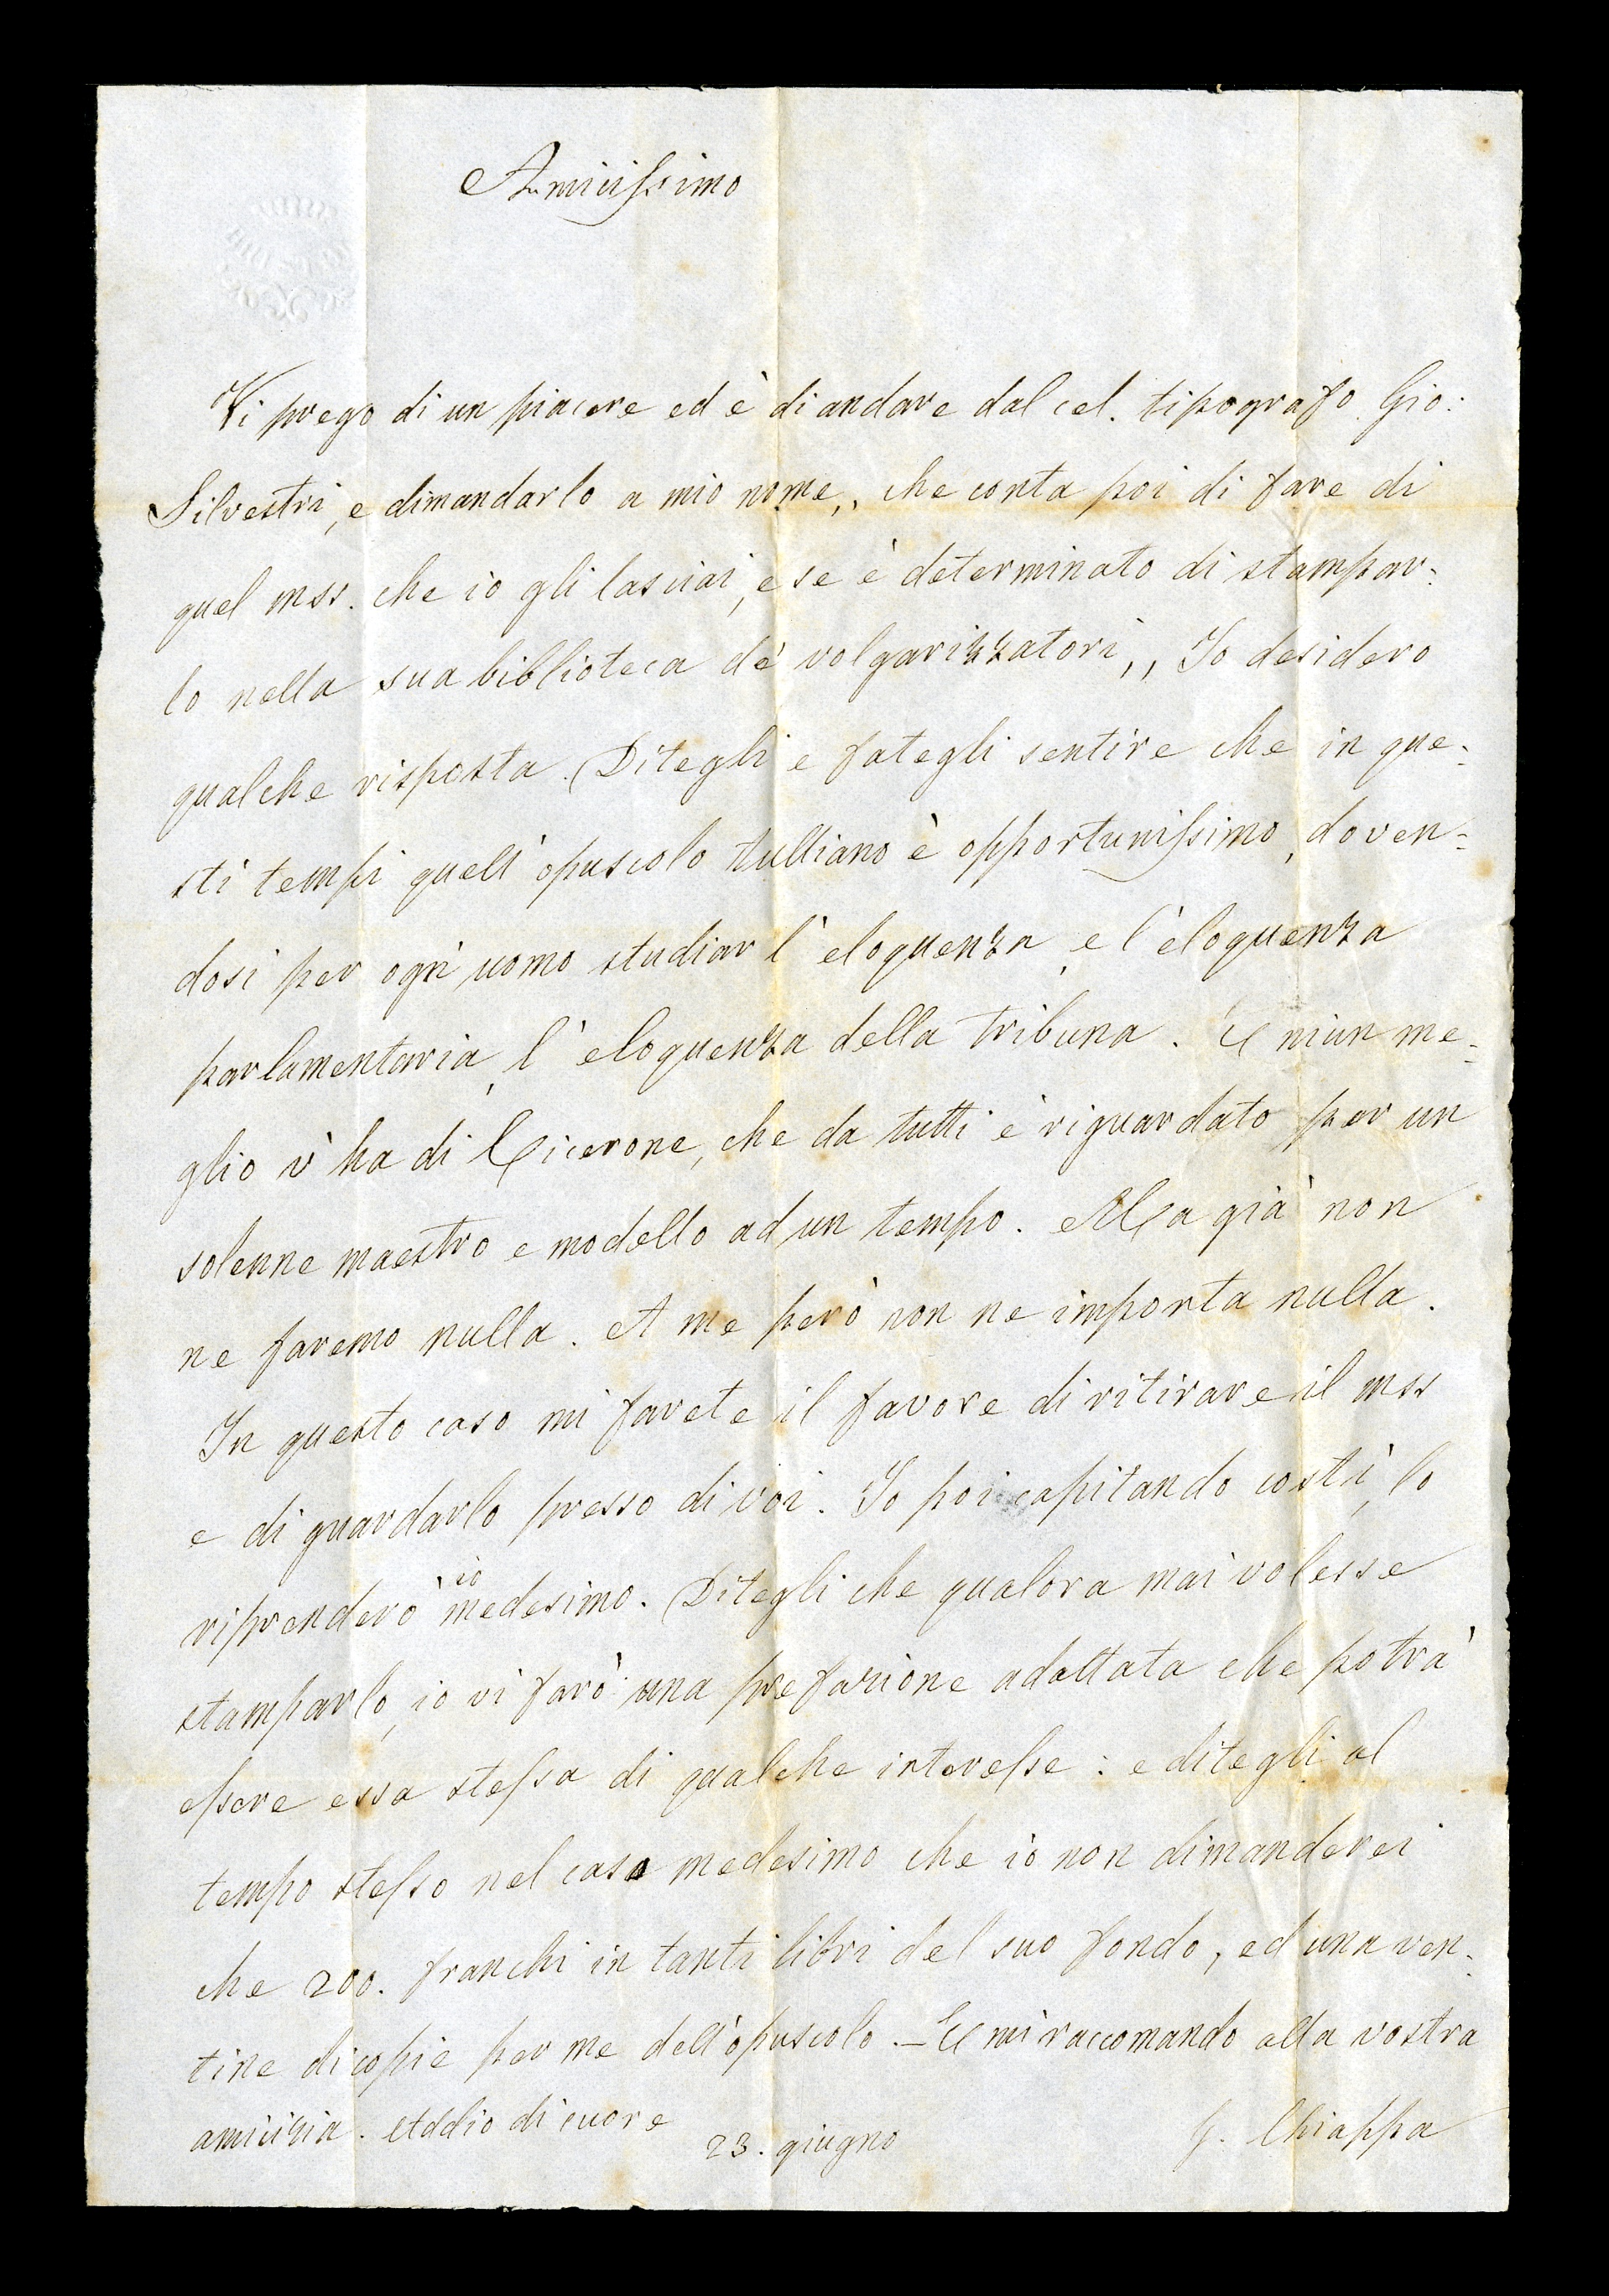 Amicissimo
Vi prego di un piacere ed è di andare dal cel. tipografo Gio:
Silvestri, e dimandarlo a mio nome,, che conta poi di fare di
quel mss. che io gli lasciai, e se è determinato di stampar-
lo nella sua biblioteca de' volgarizzatori,, Io desidero
qualche risposta. Ditegli e fategli sentire che in que-
sti tempi quell'opuscolo tulliano è opportunissimo, doven-
dosi per ogn'uomo studiar l'eloquenza, e l'eloquenza
parlamentaria, l'eloquenza della tribuna. E niun me-
glio v'ha di Cicerone, che da tutti è riguardato per un
solenne maestro e modello ad un tempo. Ma già non
ne faremo nulla. A me però non ne importa nulla.
In questo caso mi farete il favore di ritirare il mss
e di guardarlo presso di voi. Io poi capitando costì, lo
riprenderò io medesimo. Ditegli che qualora mai volesse
stamparlo, io vi farò una prefazione adattata che potrà
essere essa stessa di qualche interesse: e ditegli al
tempo stesso nel caso medesimo che io non dimanderei
che 200. franchi in tanti libri del suo fondo, ed una ven-
tine di copie per me dell'opuscolo. — E mi raccomando alla vostra
amicizia. Addio di cuore
23. giugno
G. Chiappa